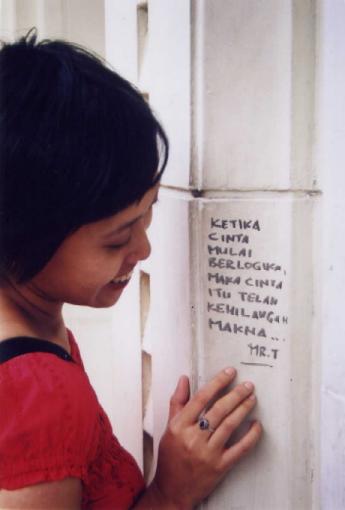 KETIKA
CINTA
MULAI
BERLOGIKA,
MAKA CINTA
ITU TELAH
KEHILANGAH
MAKNA...
MR.T